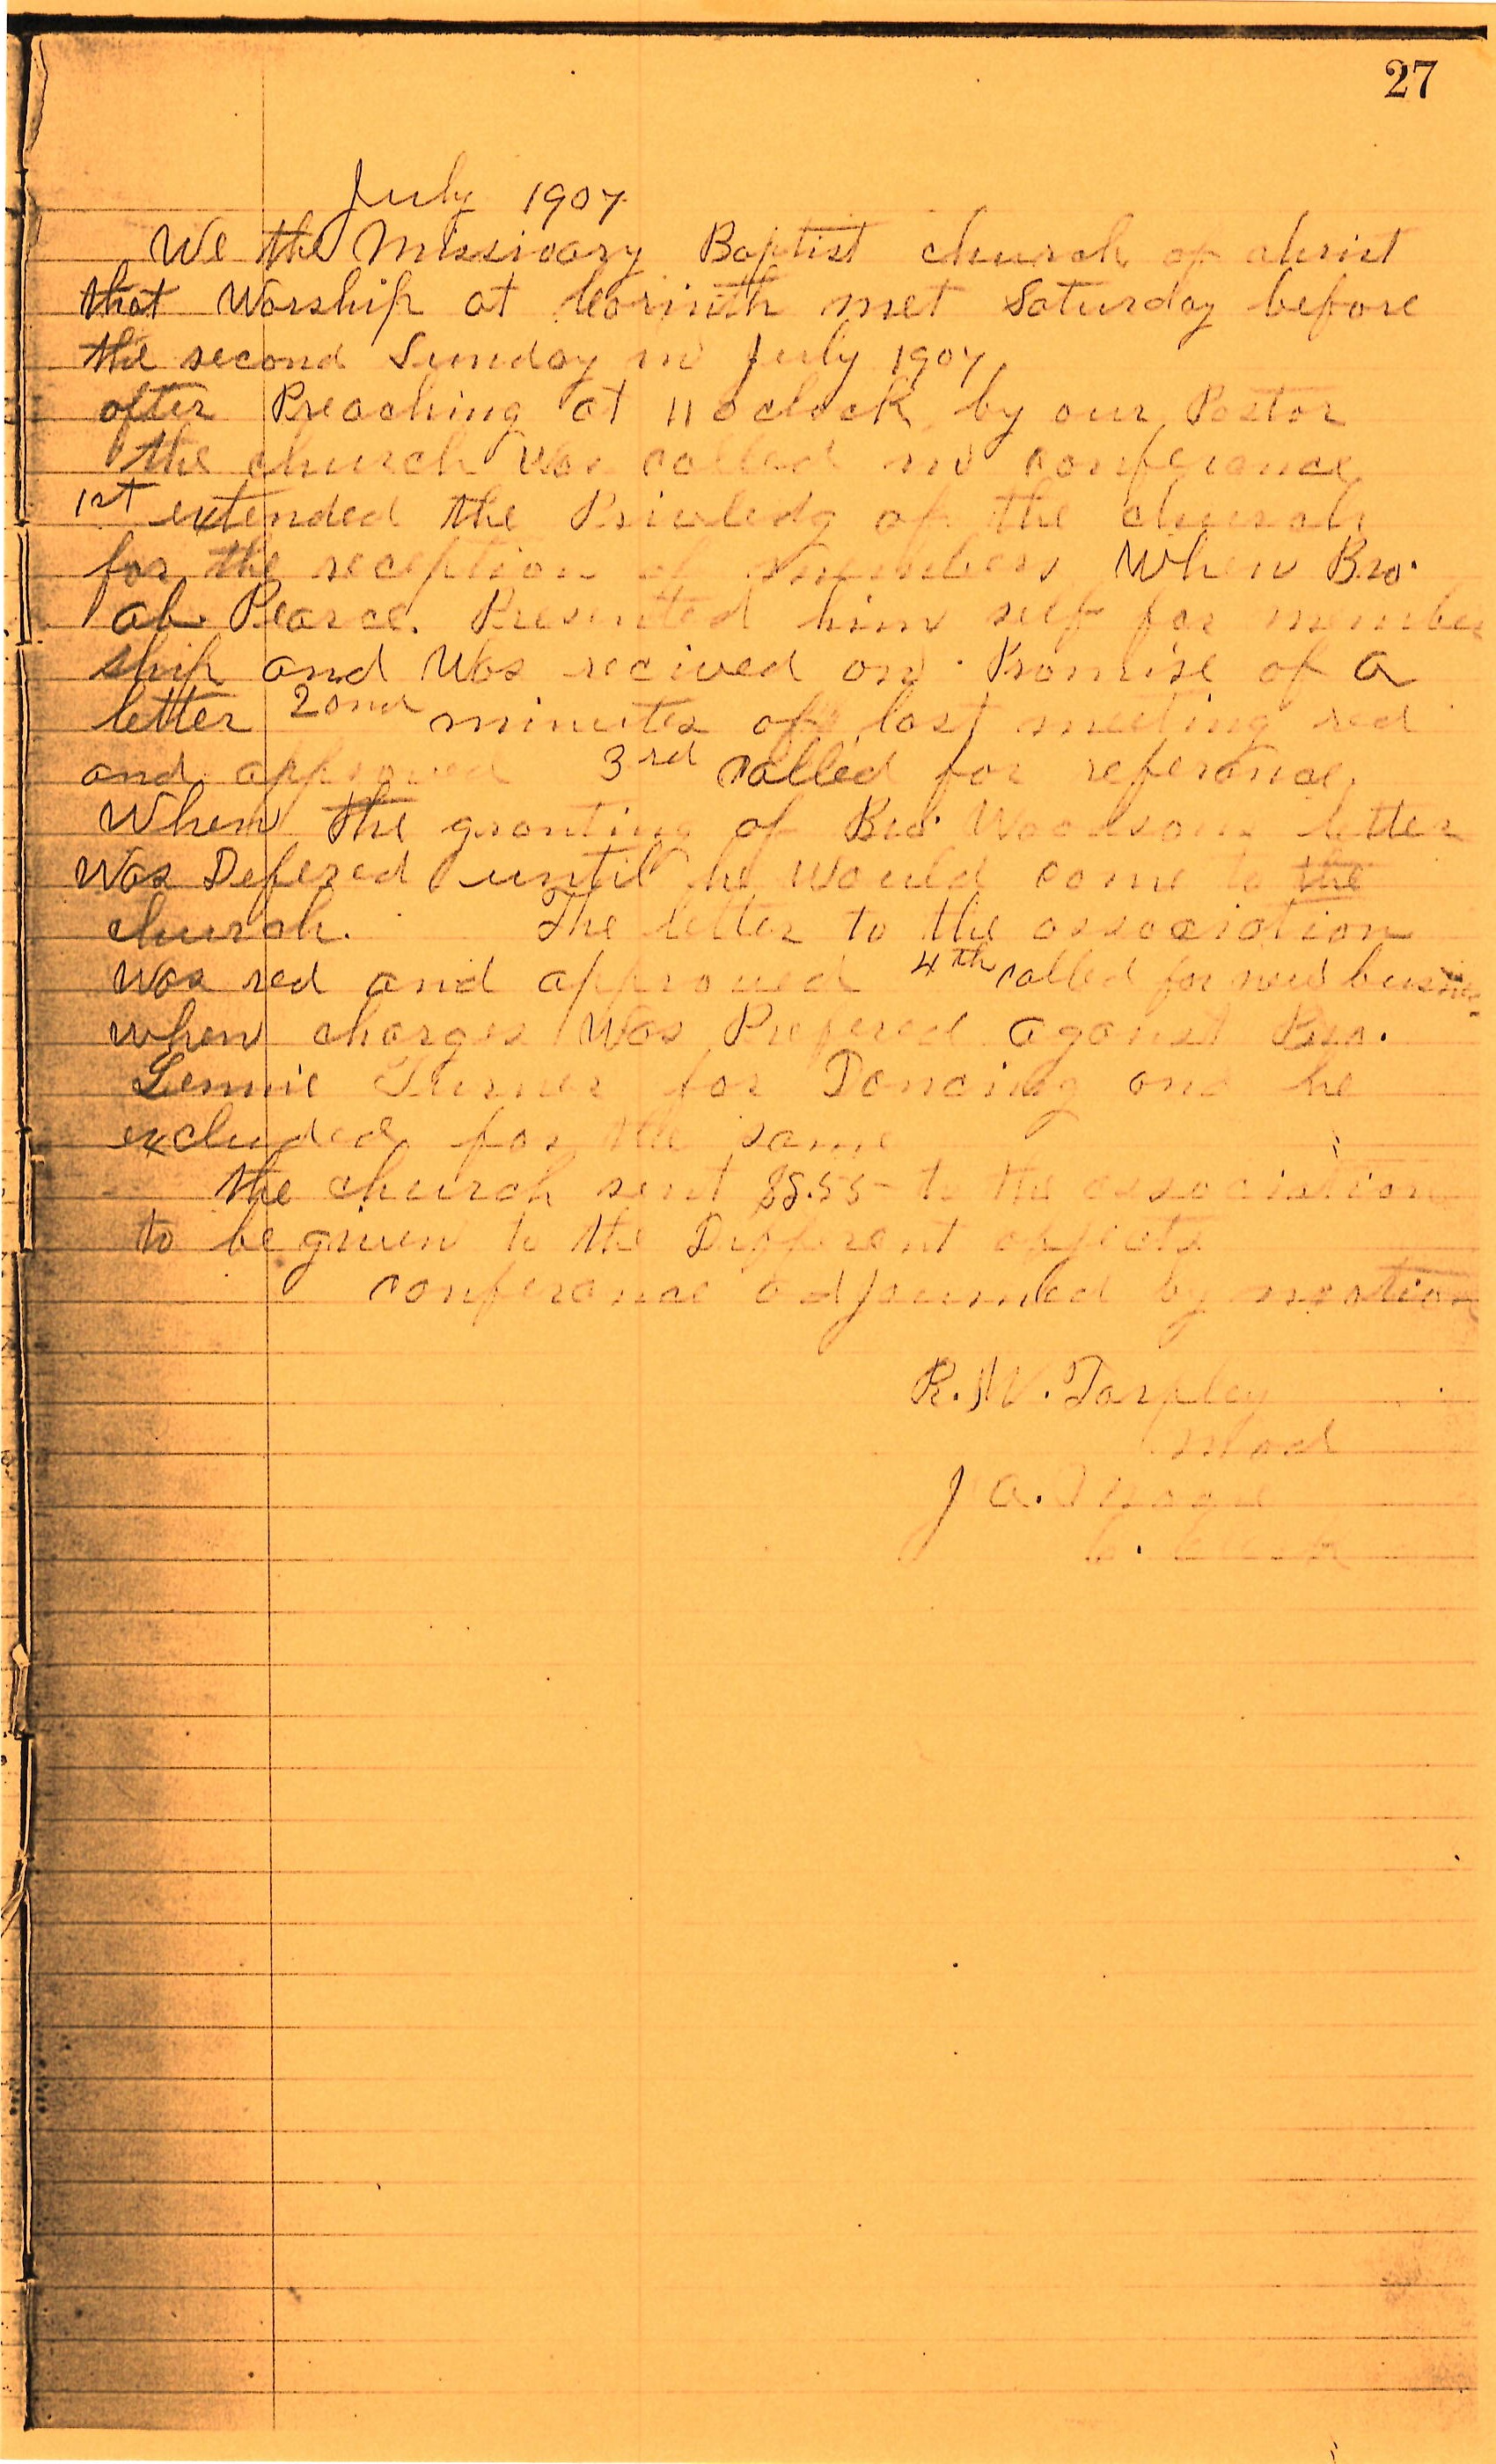 27
July 1907
We the Missivary Baptist church of christ
that Worship at Corinth met Saturday before
the second Sunday in July 1907
after Preaching at 11 oclock by our Pastor
the church was called in conferance
1st extended the Priviledg of the church
for the reception of members When Bro.
ab. Pearce. Presented him self for member
ship and Was recived on Promise of a
letter 2ond minutes of last meeting red
and approved 3rd called for referance.
When the granting of Bro. Woodsons letter
Was Defered until he would come to the
church. The letter to the association
Was red and approved 4th called for new busines
when charges Was Prefered aganst Bro.
Lennie Turner for Dancing and he
excluded for the same
the church sent $8.55 to the association
to be given to the Different objects
conferance adjourned by motion
R. W. Tarpley
Mod
J. A.
C. Clerk